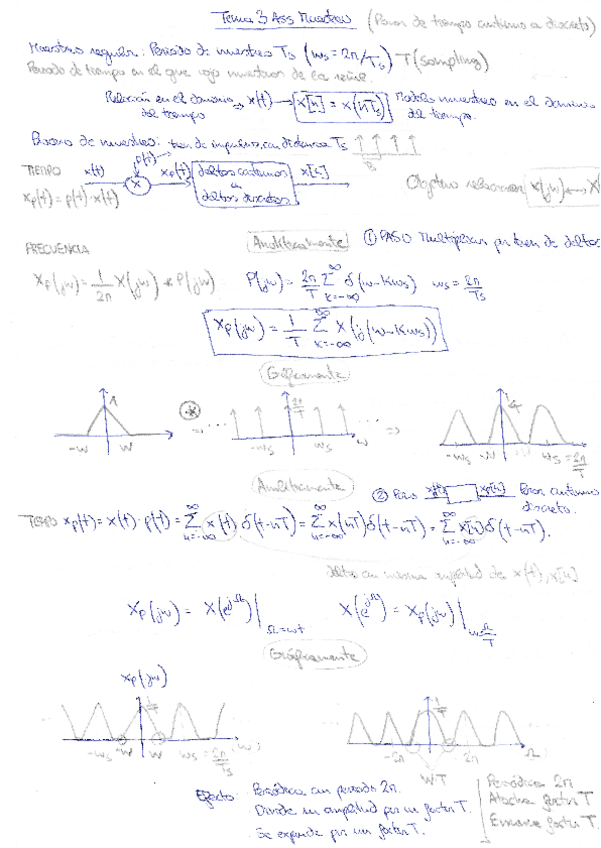 Tema 3 Ass Muestreo (Pasar de tiempo continuo a discreto)
Muestreo regular: Periodo de muestreo Ts (ws = 2π/Ts) T (sampling)
Periodo de tiempo en el que cojo muestras de la señal.
Relación en el dominio del tiempo → x(t) → x[n] = x(nTs) Modelo muestreo en el dominio del tiempo.
Proceso de muestreo: tren de impulsos con distancia Ts
Ts
TIEMPO x(t) p(t) x xp(t) deltas continuas a deltas discretas x[n]
xp(t) = p(t)·x(t)
Objetivo relacionar X(jw) ↔ X
Analíticamente ① PASO Multiplicar por tren de deltas
FRECUENCIA
Xp(jw) = 1/2π X(jw) * P(jw) P(jw) = 2π/T ∑_{k=-∞}^{∞} δ(w-kws) ws = 2π/Ts
Xp(jw) = 1/T ∑_{k=-∞}^{∞} X(j(w-kws))
Gráficamente
1 * 2π/T 1/T
-W W ... -ws ws w ... => -ws -W ws = 2π/T
Analíticamente
② Paso xp(t) xp[n] Pasar continuo a discreto.
TIEMPO xp(t) = x(t)·p(t) = ∑_{n=-∞}^{∞} x(t) δ(t-nT) = ∑_{n=-∞}^{∞} x(nT) δ(t-nT) = ∑_{n=-∞}^{∞} x[n] δ(t-nT).
deltas con misma amplitud de x(t), x[n]
Xp(jw) = X(e^{jΩ})|_{Ω=wT} X(e^{jΩ}) = Xp(jw)|_{w=Ω/T}
Gráficamente
Xp(jw)
1/T 1/T
-ws -W W ws = 2π/Ts (w) -2π 2π Ω
W·T
Efecto: Periódica con periodo 2π. Periódica 2π
Divide su amplitud por un factor T. Atenúa factor T
Se expande por un factor T. Ensancha factor T